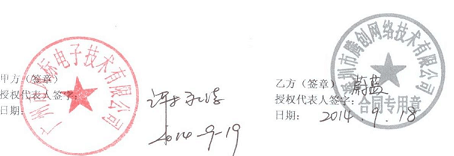 甲方（签章）
授权代表人签字：
日期：
2014-9-19
标电子技术有限公司
乙方（签章）
授权代表人签字：
蔚蓝
日期：2014.9.18
深圳市腾创网络技术有限公司
合同专用章